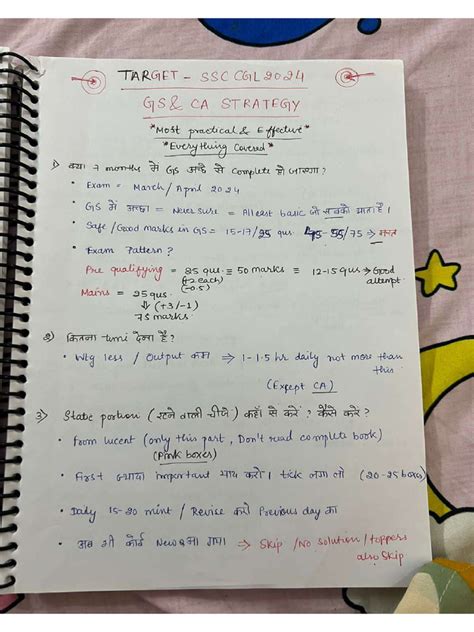 TARGET - SSC CGL 2024
GS & CA STRATEGY
*Most practical & Effective*
*Everything Covered*
1) क्या 7 months में GS अच्छे से complete हो जाएगा?
• Exam = March/April 2024
• GS में अच्छा = Never sure = Atleast basic जो सबको आता है।
• Safe/Good marks in GS = 15-17/25 qus. 45-55/75 ⇒ मस्त
• Exam Pattern?
Pre qualifying = 25 qus. ≡ 50 marks ≡ 12-15 qus → Good attempt.
(+2 each)
(-0.5)
Mains = 25 qus.
⇓ (+3/-1)
75 marks.
2) कितना time देना है?
• Wtg less / Output कम ⇒ 1-1.5 hr daily not more than this
(Except CA)
3) Static portion (रटने वाली चीजे) कहाँ से करें? कैसे करें?
• From lucent (only this part, Don't read complete book)
(Pink boxes)
• First ज्यादा important याद करो। tick लगा लो (20-25 boxes)
• Daily 15-20 mint / Revise करो Previous day का
• अब भी कोई New आ गया ⇒ Skip / No solution / toppers also skip.